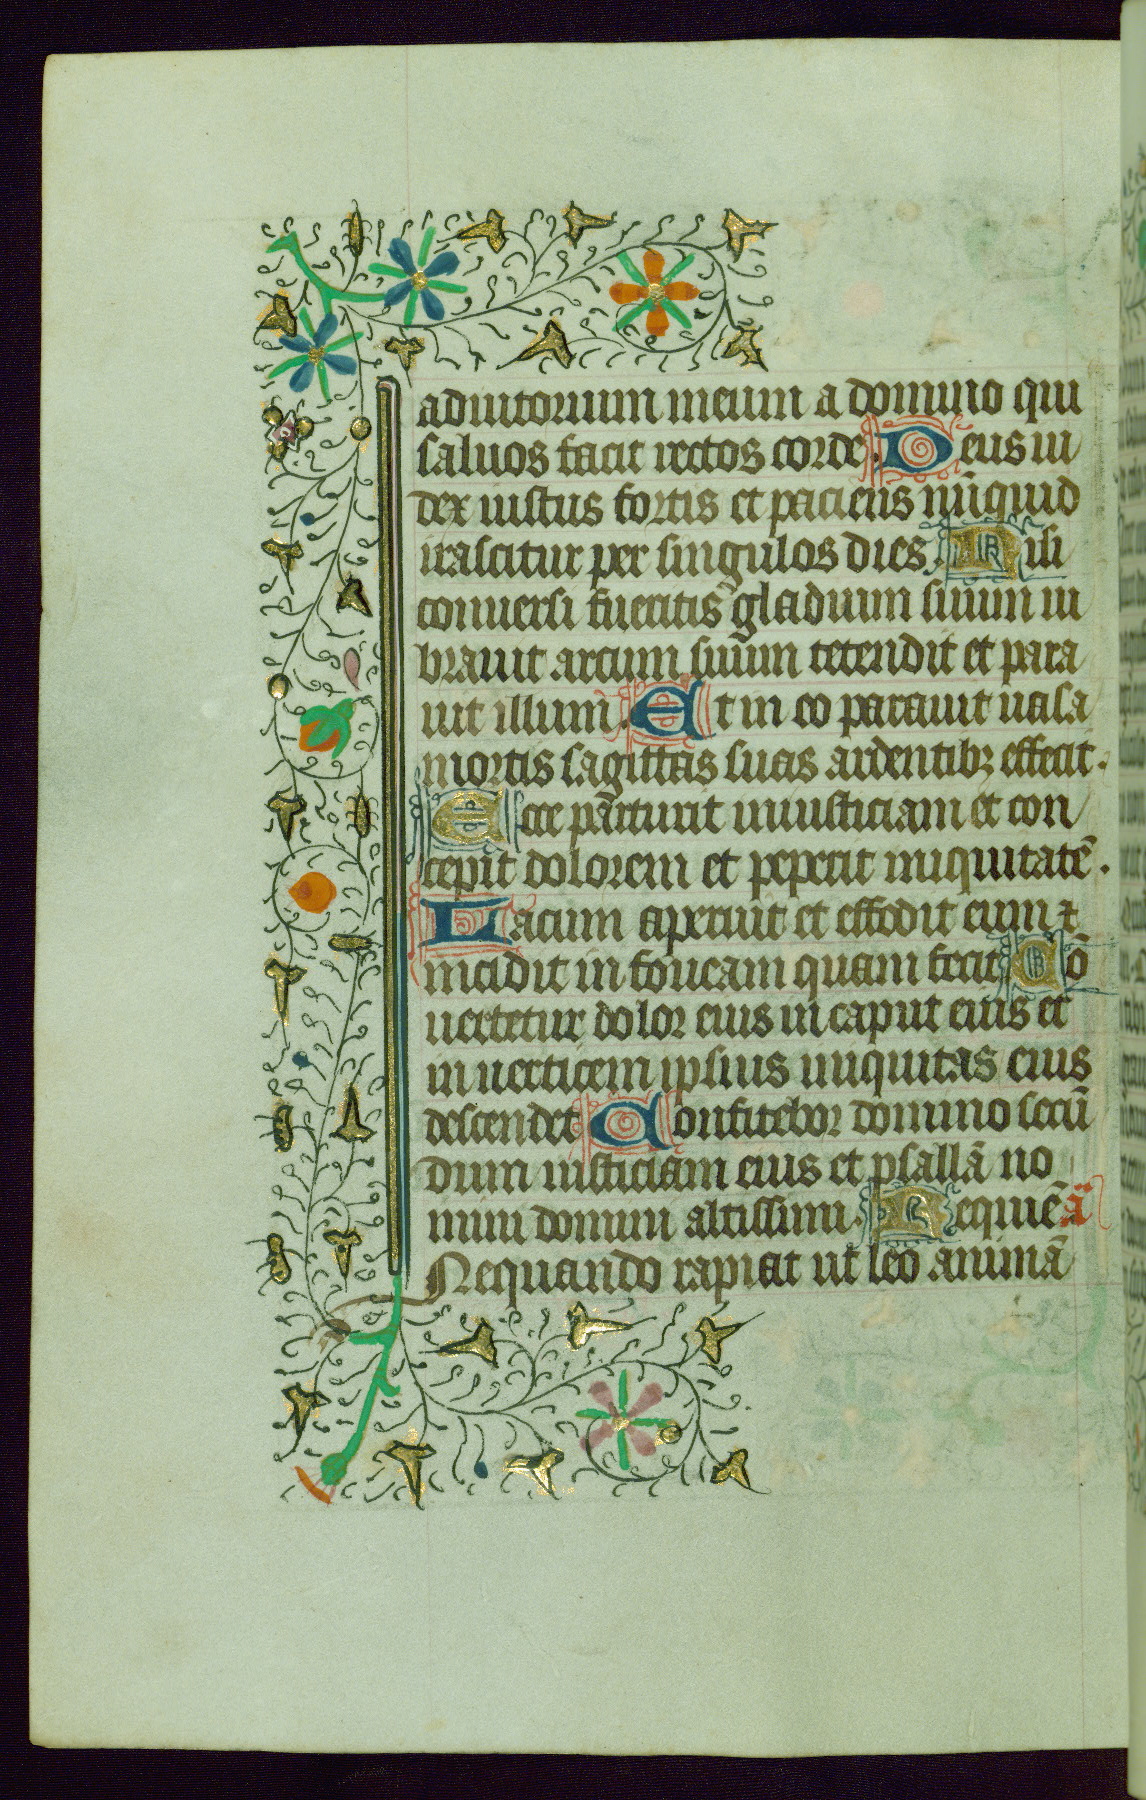 adiutorium meum a domino qui
saluos facit rectos corde. Deus iu
dex iustus fortis et paciens nūquid
irascitur per singulos dies. Nisi
conuersi fueritis gladium suum ui
brauit arcum suum tetendit et para
uit illum. Et in eo parauit uasa
mortis sagittas suas ardentibꝫ effecit.
Ecce parturit iniusticiam et con
cepit dolorem et peperit iniquitatē.
Lacum aperuit et effodit eum ⁊
incidit in foueam quam fecit. Cō
uertetur dolor eius in caput eius et
in uerticem ipsius iniquitas eius
descendet. Confitebor domino secū
dum iusticiam eius et psallā no
mini domini altissimi. Requiē ā
Nequando rapiat ut leo animā